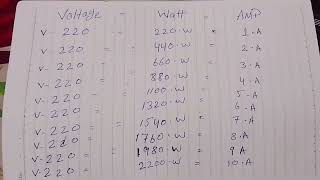 Voltage - Watt - AMP
V-220 = 220.W = 1.A
V-220 = 440.W = 2.A
V-220 = 660.W = 3.A
V-220 = 880.W = 4.A
V-220 = 1100.W = 5.A
V-220 = 1320.W = 6.A
V-220 = 1540.W = 7.A
V-220 = 1760.W = 8.A
V-220 = 1980.W = 9.A
V-220 = 2200.W = 10.A